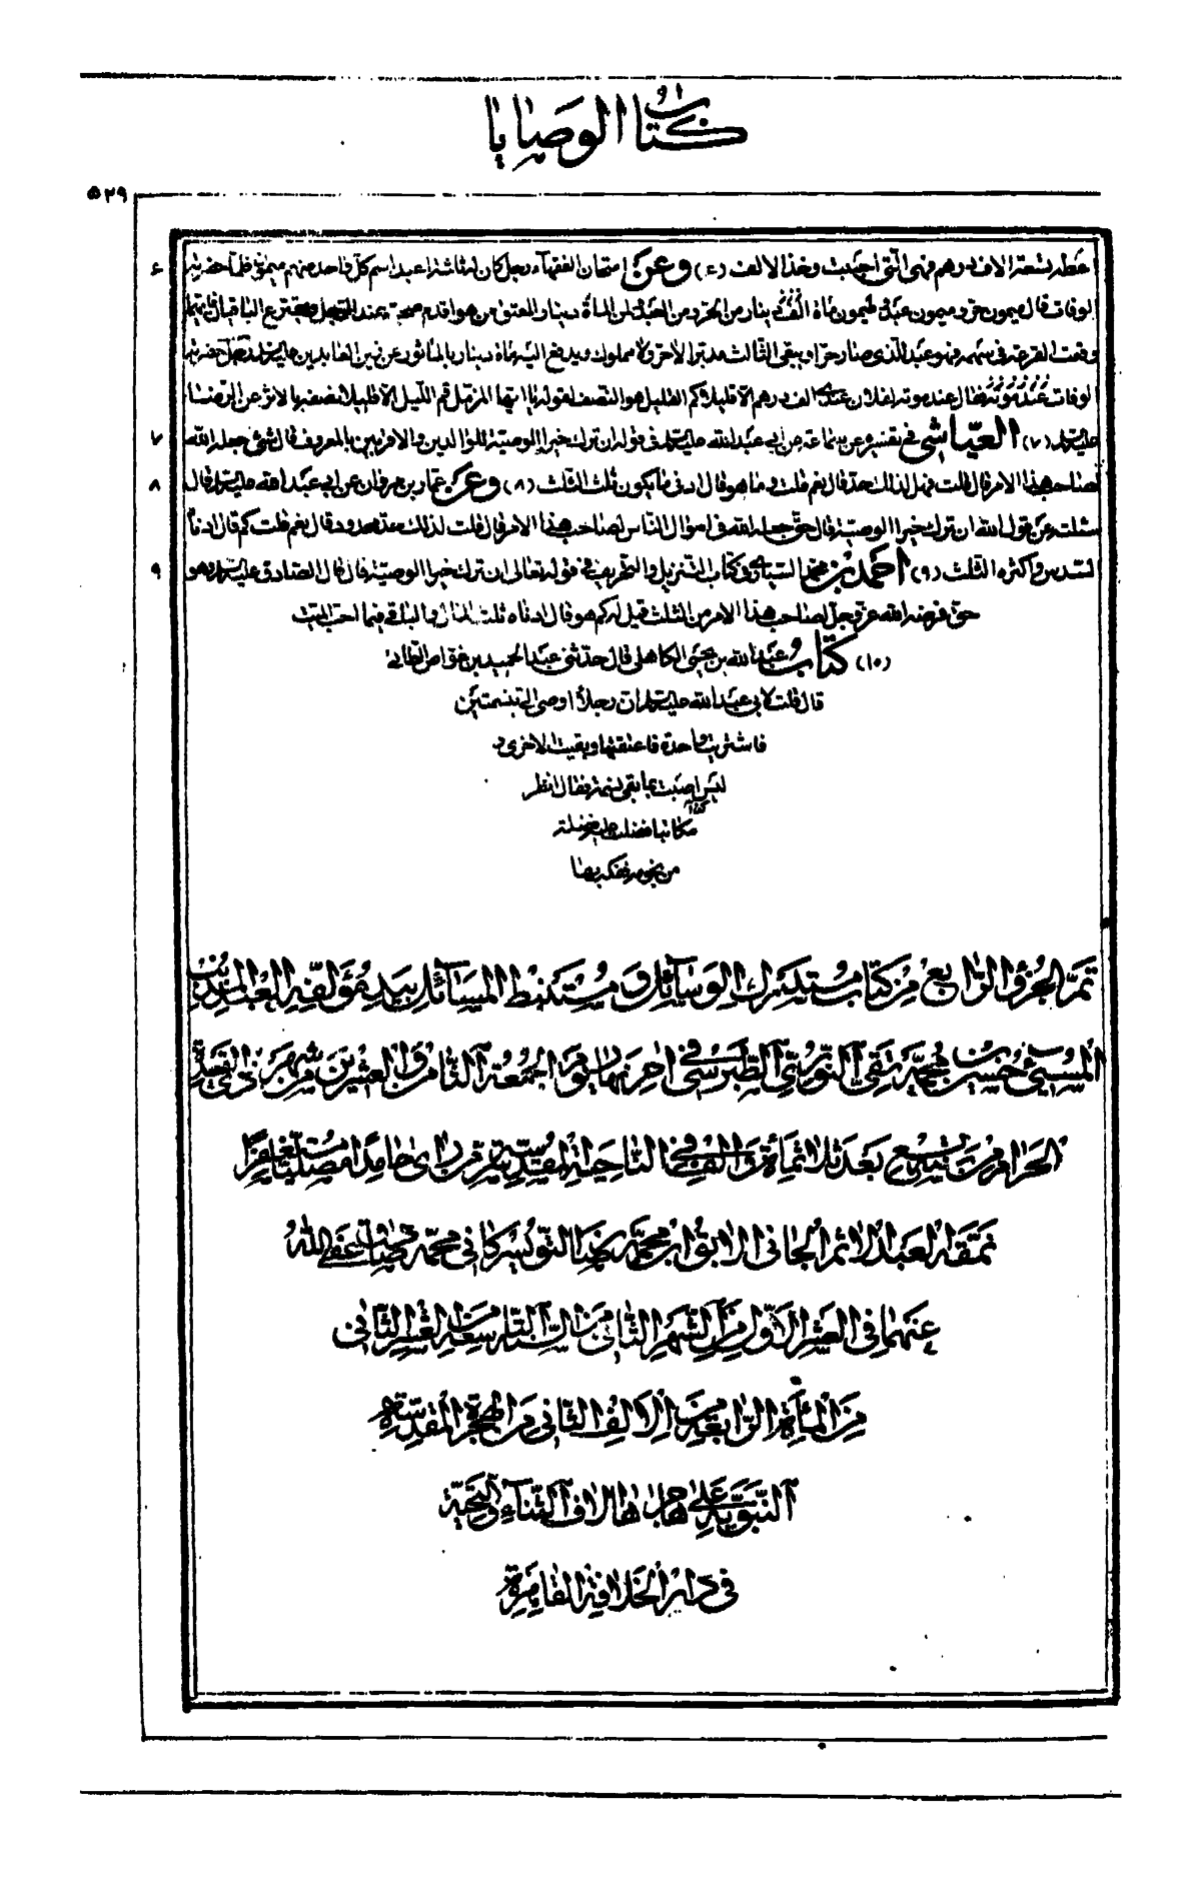 كتاب الوصايا
٥٢٩
اعطه تسعة الاف درهم فهى التى احببت وخذ الالف (٦) وعن امتحان الفقهاء رجل كان له ثلثة اعبد اسم كل واحد منهم ميمون فلما حضرته ٦
الوفات قال ميمون حر وميمون عبد ولميمون مأة الف دينار من الحر ومن العبد ولمن المأة دينار المعتق من هو اقدم صحبة عند الرجل ويقترع الباقيان فايهما
وقعت القرعة فى سهمه فهو عبد للذى صار حرا ويبقى الثالث مدبر لا حر ولا مملوك ويدفع اليه مأة دينار بالمأثور عن زين العابدين عليه السلام رجل حضرته
الوفات عند موته فقال عند موته لفلان عندى الف درهم الا قليلا كم القليل هو النصف لقوله يا ايها المزمل قم الليل الا قليلا نصفه بالاثر عن الرضا
عليه السلام (٧) العياشى فى تفسيره عن سماعة عن ابى عبد الله عليه السلام فى قوله ان ترك خيرا الوصية للوالدين والاقربين بالمعروف قال شئ جعله الله ٧
لصاحب هذا الامر قال قلت فهل لذلك حد قال نعم قلت وما هو قال ادنى ما يكون ثلث الثلث (٨) وعن عمار بن مروان عن ابى عبد الله عليه السلام قال ٨
سئلته عن قول الله ان ترك خيرا الوصية قال حق جعله الله فى اموال الناس لصاحب هذا الامر قال قلت لذلك حد محدود قال نعم قلت كم قال ادناه
السدس واكثره الثلث (٩) احمد بن محمد السيارى فى كتاب التنزيل والتحريف فى قوله تعالى ان ترك خيرا الوصية قال قال الصادق عليه السلام وهو ٩
حق فرضه الله عز وجل لصاحب هذا الامر من الثلث قيل له كم هو قال ادناه ثلث المال والباقى فيما احب الميت
(١٠) كتاب عبد الله بن يحيى الكاهلى قال حدثنى عبد الحميد بن غواص الطائى
قال قلت لابى عبد الله عليه السلام ان رجلا اوصى الى بنسمتين
فاشتريت واحدة فاعتقتها وبقيت الاخرى و
ليس اصبت بما بقى نسمة فقال انظر
مكاتبا فضلت عليه فضلة
من نجومه ففكه بها
تم الجزؤ الرابع من كتاب مستدرك الوسائل ومستنبط المسائل بيد مؤلفه العبد المذنب
المسيئ حسين بن محمد تقى النورى الطبرسى فى اخر نهار يوم الجمعة الثامن والعشرين من شهر ذى القعدة
الحرام من سنة تسع بعد ثلاثمأة والف فى الناحية المقدسة سر من راى حامدا مصليا مستغفرا
نمقه العبد الاثم الجانى الابق ابن محمد رضا التويسركانى محمد صادق عفى الله
عنهما فى العشر الاول من الشهر الثانى من السنة التاسعة من العشر الثانى
من المأة الرابعة من الالف الثانى من الهجرة المقدسة
النبوية على هاجرها الاف الثناء والتحية
فى دار الخلافة القاهرة